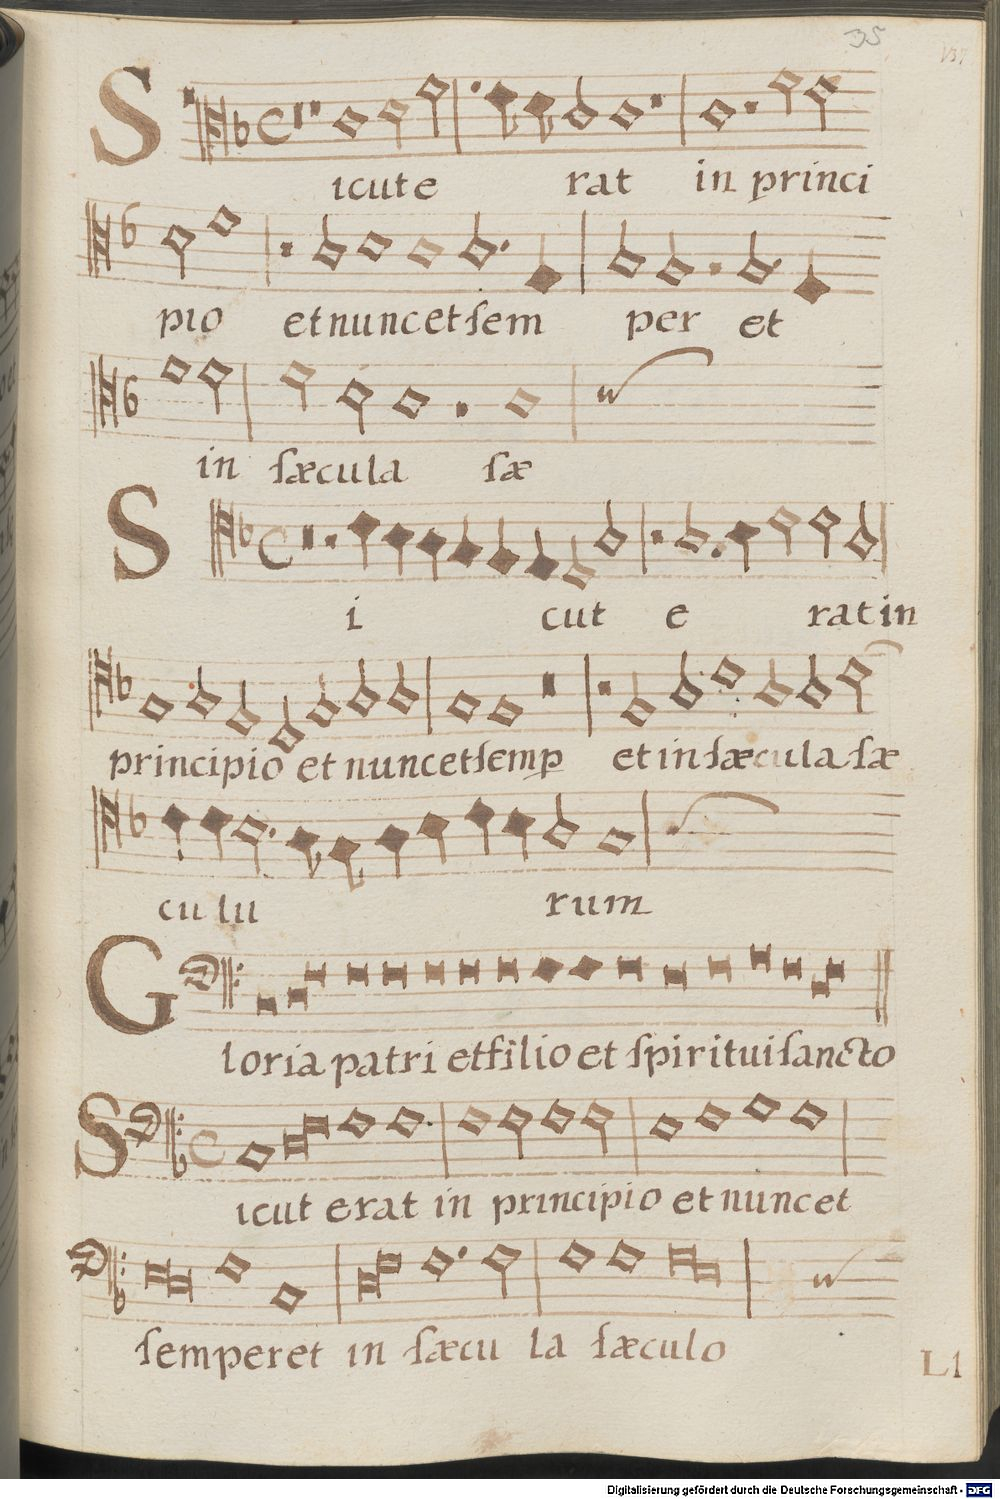 35
137
Sicut e rat in princi
pio et nunc et sem per et
in sæcula sæ
Si cut e rat in
principio et nunc et semp et in sæcula sæ
cu lu rum
Gloria patri et filio et spiritui sancto
Sicut erat in principio et nunc et
semper et in sæcu la sæculo
L1
Digitalisierung gefördert durch die Deutsche Forschungsgemeinschaft - DFG